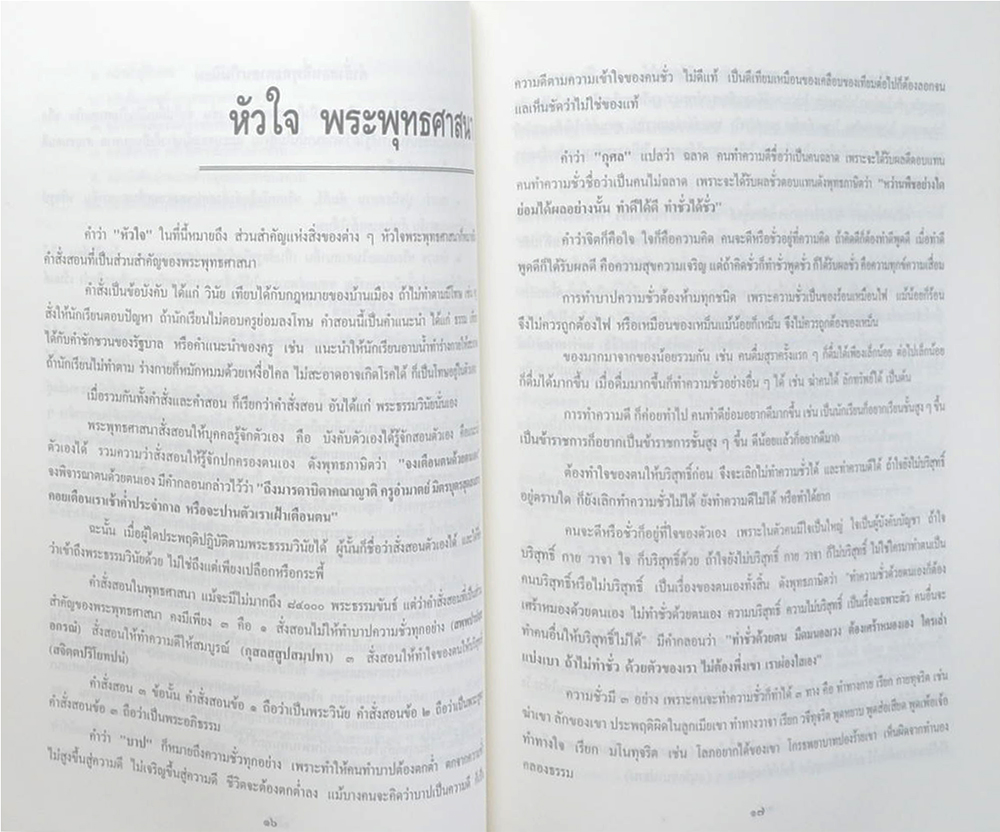 หัวใจ พระพุทธศาสนา
คำว่า "หัวใจ" ในที่นี้หมายถึง ส่วนสำคัญแห่งสิ่งของต่าง ๆ หัวใจพระพุทธศาสนาก็หมายถึง
คำสั่งสอนที่เป็นส่วนสำคัญของพระพุทธศาสนา
คำสั่งเป็นข้อบังคับ ได้แก่ วินัย เทียบได้กับกฎหมายของบ้านเมือง ถ้าไม่ทำตามมีโทษ เช่น
สั่งให้นักเรียนตอบปัญหา ถ้านักเรียนไม่ตอบครูย่อมลงโทษ คำสอนนี้เป็นคำแนะนำ ได้แก่ ธรรม
ได้กับคำชักชวนของรัฐบาล หรือคำแนะนำของครู เช่น แนะนำให้นักเรียนอาบน้ำทำร่างกายให้สะอาด
ถ้านักเรียนไม่ทำตาม ร่างกายก็หมักหมมด้วยเหงื่อไคล ไม่สะอาดอาจเกิดโรคได้ ก็เป็นโทษอยู่ในตัวเอง
เมื่อรวมกันทั้งคำสั่งและคำสอน ก็เรียกว่าคำสั่งสอน อันได้แก่ พระธรรมวินัยนั่นเอง
พระพุทธศาสนาสั่งสอนให้บุคคลรู้จักตัวเอง คือ บังคับตัวเองได้รู้จักสอนตัวเอง
ตัวเองได้ รวมความว่าสั่งสอนให้รู้จักปกครองตนเอง ดังพุทธภาษิตว่า "จงเตือนตนด้วยตนเอง
จงพิจารณาตนด้วยตนเอง มีคำกลอนกล่าวไว้ว่า "ถึงมารดาบิดาคณาญาติ ครูอำมาตย์ มิตรบุตร
คอยเตือนเราเช้าค่ำประจำกาล หรือจะปานตัวเราเฝ้าเตือนตน"
ฉะนั้น เมื่อผู้ใดประพฤติปฏิบัติตามพระธรรมวินัยได้ ผู้นั้นก็ชื่อว่าสั่งสอนตัวเองได้ และได้ชื่อ
ว่าเข้าถึงพระธรรมวินัยด้วย ไม่ใช่ถึงแต่เพียงเปลือกหรือกระพี้
คำสั่งสอนในพุทธศาสนา แม้จะมีไม่มากถึง ๘๔๐๐๐ พระธรรมขันธ์ แต่ว่าคำสั่งสอนที่เป็นส่วน
สำคัญของพระพุทธศาสนา คงมีเพียง ๓ คือ ๑ สั่งสอนไม่ให้ทำบาปความชั่วทุกอย่าง (สพฺพปาปสฺส
อกรณํ) สั่งสอนให้ทำความดีให้สมบูรณ์ (กุสลสฺสูปสมฺปทา) ๓ สั่งสอนให้ทำใจของตนให้บริสุทธิ์
(สจิตฺตปริโยทปนํ)
คำสั่งสอน ๓ ข้อนั้น คำสั่งสอนข้อ ๑ ถือว่าเป็นพระวินัย คำสั่งสอนข้อ ๒ ถือว่าเป็นพระสูตร
คำสั่งสอนข้อ ๓ ถือว่าเป็นพระอภิธรรม
คำว่า "บาป" ก็หมายถึงความชั่วทุกอย่าง เพราะทำให้คนทำบาปต้องตกต่ำ ตกจากความดี
ไม่สูงขึ้นสู่ความดี ไม่เจริญขึ้นสู่ความดี ชีวิตจะต้องตกต่ำลง แม้บางคนจะคิดว่าบาปเป็นความดี
๑๖
ความดีตามความเข้าใจของคนชั่ว ไม่ดีแท้ เป็นดีเทียมเหมือนของเคลือบของเทียมต่อไปก็ต้องลอกจน
แลเห็นชัดว่าไม่ใช่ของแท้
คำว่า "กุศล" แปลว่า ฉลาด คนทำความดีชื่อว่าเป็นคนฉลาด เพราะจะได้รับผลดีตอบแทน
คนทำความชั่วชื่อว่าเป็นคนไม่ฉลาด เพราะจะได้รับผลชั่วตอบแทนดังพุทธภาษิตว่า "หว่านพืชอย่างใด
ย่อมได้ผลอย่างนั้น ทำดีได้ดี ทำชั่วได้ชั่ว"
คำว่าจิตก็คือใจ ใจก็คือความคิด คนจะดีหรือชั่วอยู่ที่ความคิด ถ้าคิดดีก็ต้องทำดีพูดดี เมื่อทำดี
พูดดีก็ได้รับผลดี คือความสุขความเจริญ แต่ถ้าคิดชั่วก็ทำชั่วพูดชั่ว ก็ได้รับผลชั่ว คือความทุกข์ความเสื่อม
การทำบาปความชั่วต้องห้ามทุกชนิด เพราะความชั่วเป็นของร้อนเหมือนไฟ แม้น้อยก็ร้อน
จึงไม่ควรถูกต้องไฟ หรือเหมือนของเหม็นแม้น้อยก็เหม็น จึงไม่ควรถูกต้องของเหม็น
ของมากมาจากของน้อยรวมกัน เช่น คนดื่มสุราครั้งแรก ๆ ก็ดื่มได้เพียงเล็กน้อย ต่อไปเล็กน้อย
ก็ดื่มได้มากขึ้น เมื่อดื่มมากขึ้นก็ทำความชั่วอย่างอื่น ๆ ได้ เช่น ฆ่าคนได้ ลักทรัพย์ได้ เป็นต้น
การทำความดี ก็ค่อยทำไป คนทำดีย่อมอยากดีมากขึ้น เช่น เป็นนักเรียนก็อยากเรียนชั้นสูง ๆ ขึ้น
เป็นข้าราชการก็อยากเป็นข้าราชการชั้นสูง ๆ ขึ้น ดีน้อยแล้วก็อยากดีมาก
ต้องทำใจของตนให้บริสุทธิ์ก่อน จึงจะเลิกไม่ทำความชั่วได้ และทำความดีได้ ถ้าใจยังไม่บริสุทธิ์
อยู่ตราบใด ก็ยังเลิกทำความชั่วไม่ได้ ยังทำความดีไม่ได้ หรือทำได้ยาก
คนจะดีหรือชั่วก็อยู่ที่ใจของตัวเอง เพราะในตัวคนมีใจเป็นใหญ่ ใจเป็นผู้บังคับบัญชา ถ้าใจ
บริสุทธิ์ กาย วาจา ใจ ก็บริสุทธิ์ด้วย ถ้าใจยังไม่บริสุทธิ์ กาย วาจา ก็ไม่บริสุทธิ์ ไม่ใช่ใครมาทำตนเป็น
คนบริสุทธิ์หรือไม่บริสุทธิ์ เป็นเรื่องของตนเองทั้งสิ้น ดังพุทธภาษิตว่า "ทำความชั่วด้วยตนเองก็ต้อง
เศร้าหมองด้วยตนเอง ไม่ทำชั่วด้วยตนเอง ความบริสุทธิ์ ความไม่บริสุทธิ์ เป็นเรื่องเฉพาะตัว คนอื่นจะ
ทำคนอื่นให้บริสุทธิ์ไม่ได้" มีคำกลอนว่า "ทำชั่วด้วยตน มืดมนนอลเวง ต้องเศร้าหมองเอง ใครเล่า
แบ่งเบา ถ้าไม่ทำชั่ว ด้วยตัวของเรา ไม่ต้องพึ่งเขา เราผ่องใสเอง"
ความชั่วมี ๓ อย่าง เพราะคนจะทำความชั่วก็ทำได้ ๓ ทาง คือ ทำทางกาย เรียก กายทุจริต เช่น
ฆ่าเขา ลักของเขา ประพฤติผิดในลูกเมียเขา ทำทางวาจา เรียก วจีทุจริต พูดหยาบ พูดส่อเสียด พูดเพ้อเจ้อ
ทำทางใจ เรียก มโนทุจริต เช่น โลภอยากได้ของเขา โกรธพยาบาทปองร้ายเขา เห็นผิดจากทำนอง
คลองธรรม
๑๗